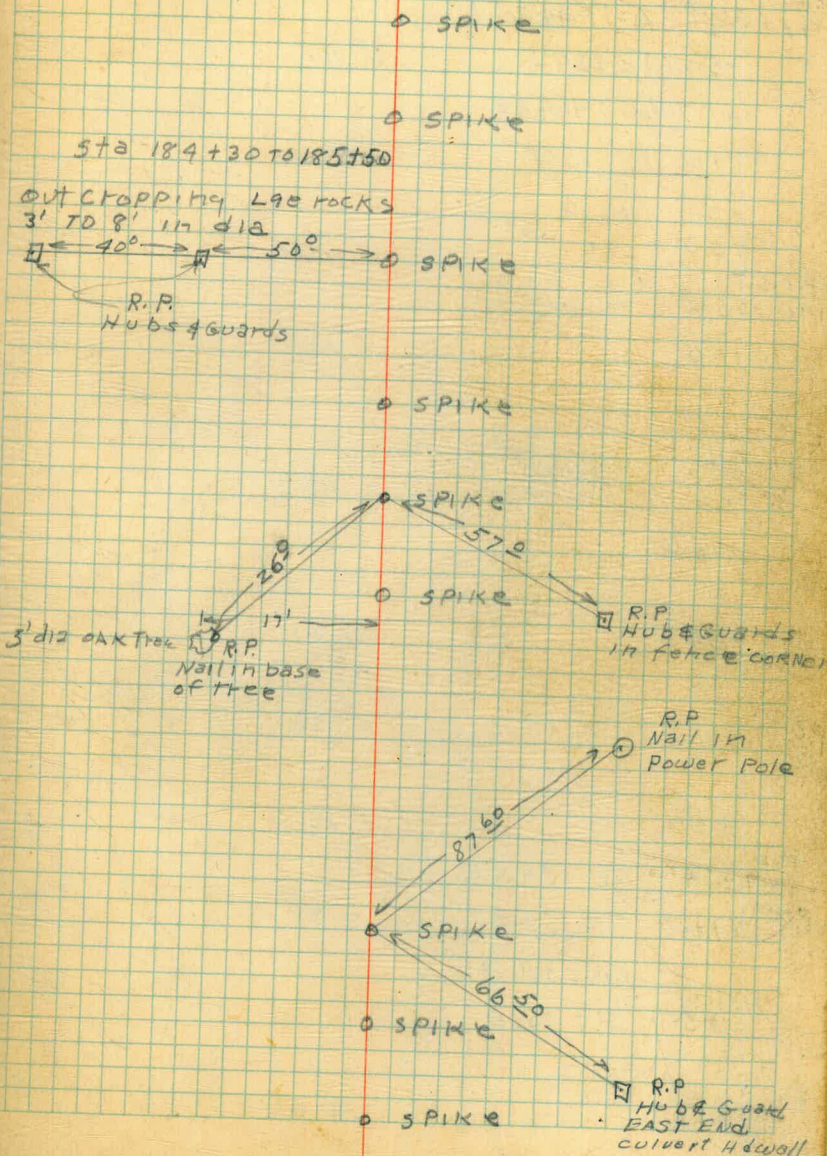 SPIKE
SPIKE
Sta 184+30 TO 185+50
Out cropping Lge rocks
3' TO 8' in dia
40° 50° SPIKE
R.P.
Hubs & Guards
SPIKE
SPIKE
26° 57°
SPIKE
17'
3' dia OAK Tree
R.P.
Nail in base
of tree
R.P.
Hub & Guards
in fence CORNER
R.P
Nail in
Power Pole
87 60
SPIKE
66 50
SPIKE
R.P
Hub & Guard
EAST End
culvert Hdwall
SPIKE